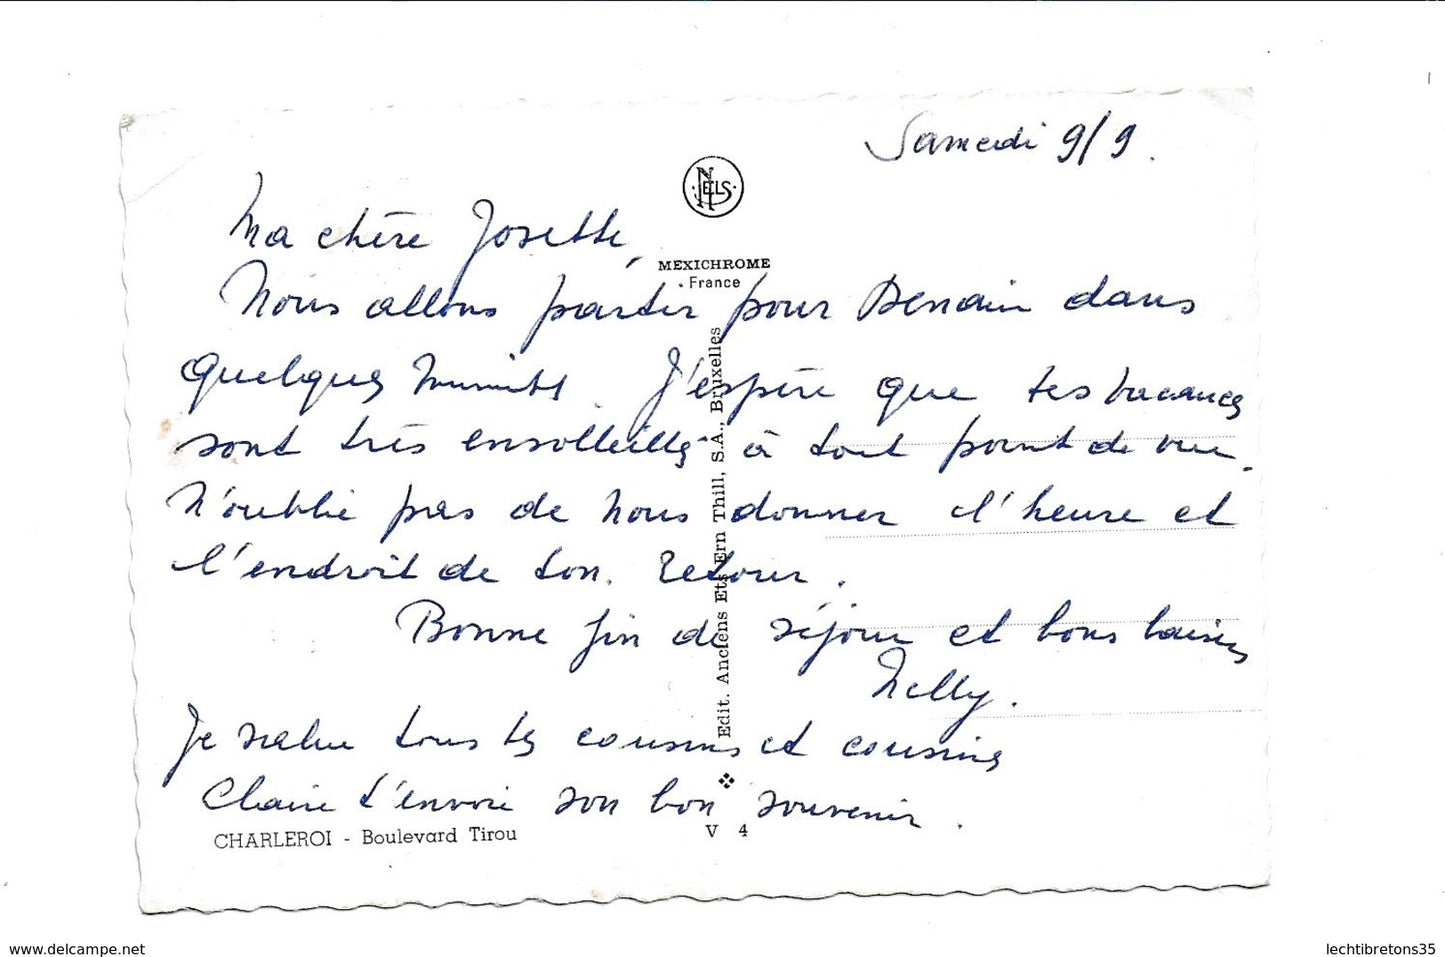 Samedi 9/9.
NELS
Ma chère Josette,
MEXICHROME
France
Nous allons partir pour Denain dans
quelques minutes. J'espère que tes vacances
sont très ensolleillés à tout point de vue.
N'oublie pas de nous donner l'heure et
l'endroit de ton retour.
Bonne fin de séjour et bons baisers
Nelly.
Je salue tous les cousins et cousines
Claire t'envoie son bon souvenir.
Edit. Anciens Ets Ern Thill, S.A., Bruxelles
CHARLEROI - Boulevard Tirou
V 4
www.delcampe.net
lechtibretons35